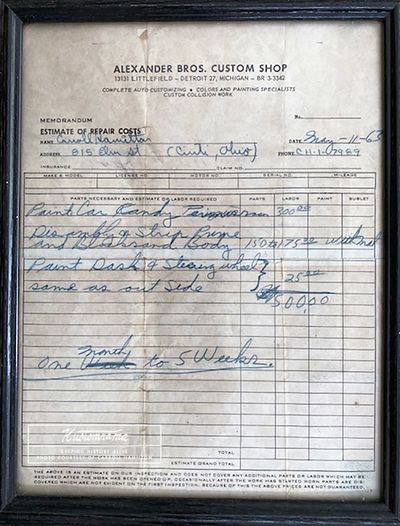 ALEXANDER BROS. CUSTOM SHOP
13131 LITTLEFIELD – DETROIT 27, MICHIGAN – BR 3-3342
COMPLETE AUTO CUSTOMIZING • COLORS AND PAINTING SPECIALISTS
CUSTOM COLLISION WORK
MEMORANDUM
No.
ESTIMATE OF REPAIR COSTS
NAME Carroll Hamilton DATE May-11-63
ADDRESS 815 Elm St (Cinti, Ohio) PHONE CH-1-7989
INSURANCE CLAIM NO.
MAKE & MODEL LICENSE NO. MOTOR NO. SERIAL NO. MILEAGE
PARTS NECESSARY AND ESTIMATE OR LABOR REQUIRED PARTS LABOR PAINT SUBLET
Paint Car Candy 300 00
& Strip Prime
and Body 150 to 175 00
Paint Dash & Steering wheel
same as out Side 25 00
500,00
One month to 5 Weeks.
KEEPING HISTORY ALIVE
PHOTO COURTESY OF CARROLL HAMILTON
TOTAL
ESTIMATE GRAND TOTAL
THE ABOVE IS AN ESTIMATE ON OUR INSPECTION AND DOES NOT COVER ANY ADDITIONAL PARTS OR LABOR WHICH MAY BE
REQUIRED AFTER THE WORK HAS BEEN OPENED UP. OCCASIONALLY AFTER THE WORK HAS STARTED WORN PARTS ARE DIS-
COVERED WHICH ARE NOT EVIDENT ON THE FIRST INSPECTION. BECAUSE OF THIS THE ABOVE PRICES ARE NOT GUARANTEED.